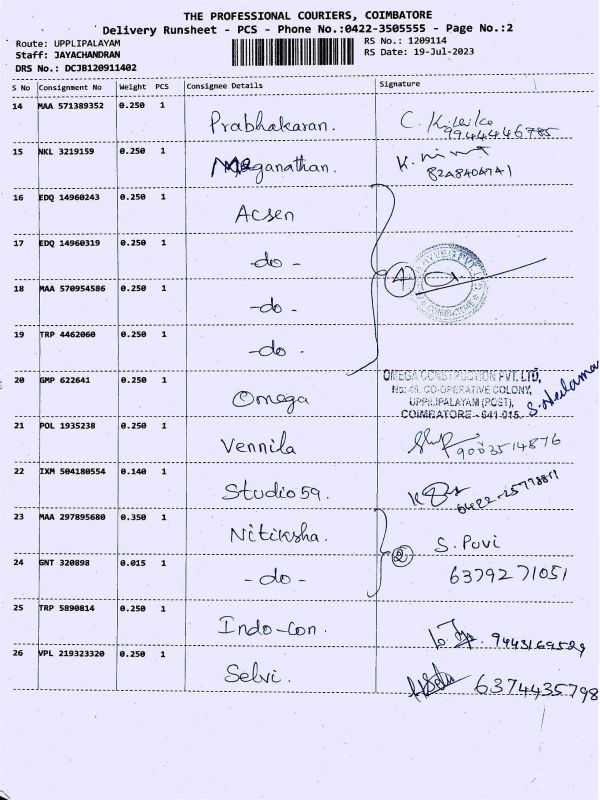 THE PROFESSIONAL COURIERS, COIMBATORE
Delivery Runsheet - PCS - Phone No.:0422-3505555 - Page No.:2
Route: UPPLIPALAYAM
RS No.: 1209114
Staff: JAYACHANDRAN
RS Date: 19-Jul-2023
DRS No.: DCJB120911402
S No Consignment No Weight PCS Consignee Details Signature
14 MAA 571389352 0.250 1 Prabhakaran. C.
9944446785
15 NKL 3219159 0.250 1 Meganathan. K.
16 EDQ 14960243 0.250 1 Acsen
17 EDQ 14960319 0.250 1 -do-
4
18 MAA 570954586 0.250 1 -do-
19 TRP 4462060 0.250 1 -do.
20 GMP 622641 0.250 1 Omega
OMEGA CONSTRUCTION PVT. LTD,
No: 46, CO-OPERATIVE COLONY,
UPPILIPALAYAM (POST),
COIMBATORE - 641 015. S. Neelama
21 POL 1935238 0.250 1 Vennila 9003514876
22 IXM 504180554 0.140 1 Studio 59.
23 MAA 297895680 0.350 1 Nitiksha. S. Puvi
2
24 GNT 320898 0.015 1 -do- 6379271051
25 TRP 5890814 0.250 1 Indo-Con. 9443169529
26 VPL 219323320 0.250 1 Selvi. 6374435798